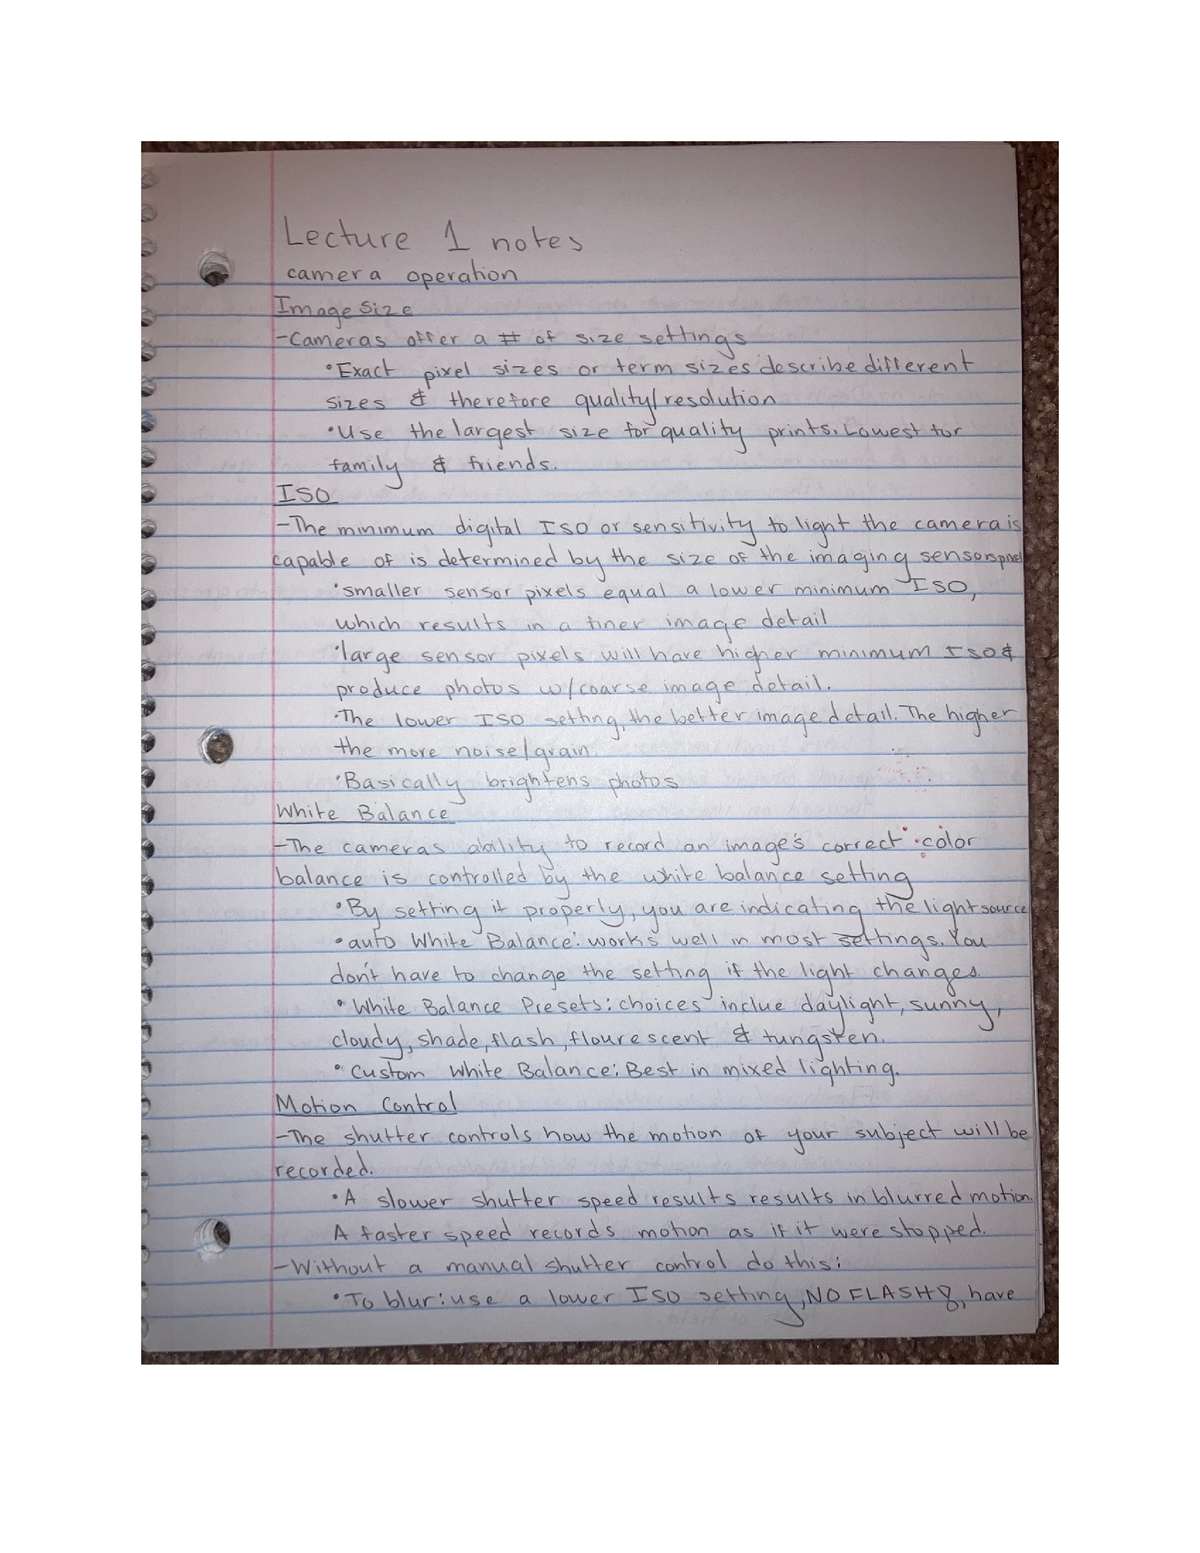 Lecture 1 notes
camera operation
Image Size
-Cameras offer a # of size settings
•Exact pixel sizes or term sizes describe different
sizes & therefore quality/resolution
•Use the largest size for quality prints. Lowest for
family & friends.
ISO
-The minimum digital ISO or sensitivity to light the camera is
capable of is determined by the size of the imaging sensors pixel
•smaller sensor pixels equal a lower minimum ISO,
which results in a finer image detail
•large sensor pixels will have higher minimum ISO &
produce photos w/coarse image detail.
•The lower ISO setting, the better image detail. The higher
the more noise/grain.
•Basically brightens photos
White Balance
-The cameras ability to record an image's correct color
balance is controlled by the white balance setting
•By setting it properly, you are indicating the light source
•auto White Balance: works well in most settings. You
don't have to change the setting if the light changes.
•White Balance Presets: choices inclue daylight, sunny,
cloudy, shade, flash, flourescent & tungsten.
•Custom White Balance: Best in mixed lighting.
Motion Control
-The shutter controls how the motion of your subject will be
recorded.
•A slower shutter speed results results in blurred motion.
A faster speed records motion as if it were stopped.
-Without a manual shutter control do this:
•To blur: use a lower ISO setting, NO FLASH &, have